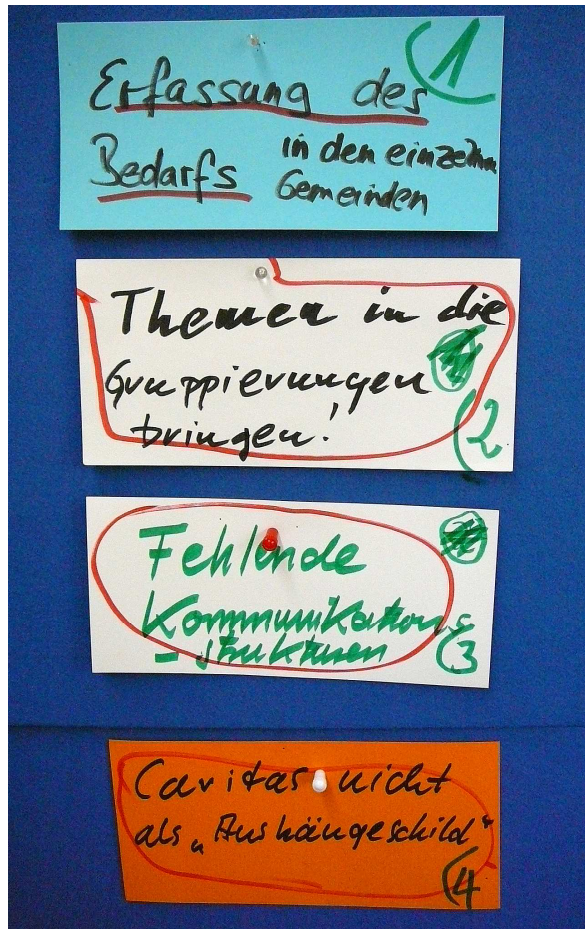 1
Erfassung des
Bedarfs in den einzelnen
Gemeinden
Themen in die
Gruppierungen
bringen!
2
Fehlende
Kommunikations
- strukturen
3
Caritas nicht
als „Aushängeschild"
4